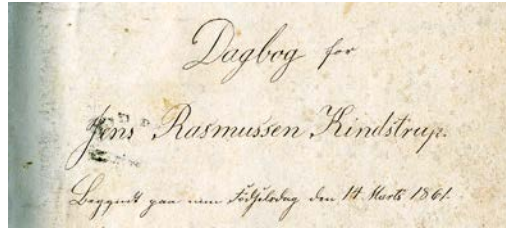 Dagbog for
Jens Rasmussen Kindstrup.
Begyndt paa min Födselsdag den 14 Marts 1861.